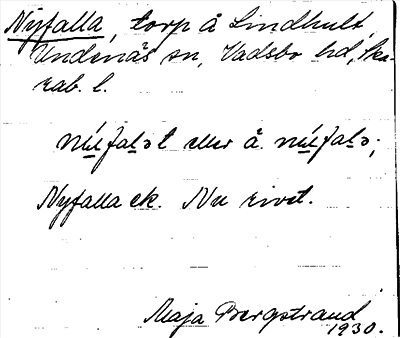 Nyfalla, torp å Lindhult,
Undenäs sn, Vadsbo hd, Ska-
rab. l.
eller å
Nyfalla ek. Nu rivet.
Maja Bergstrand
1930.